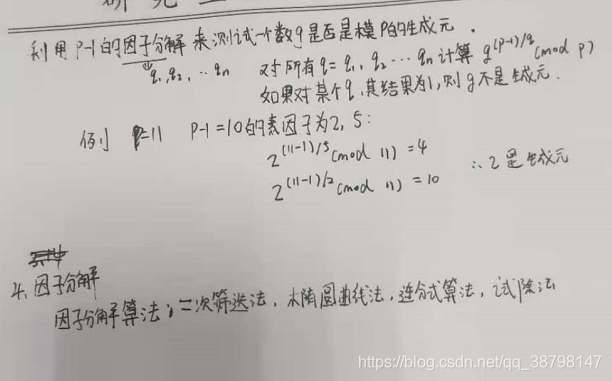 利用P-1的因子分解来测试一个数g是否是模P的生成元.
q₁,q₂,‥qn 对于所有q=q₁,q₂…qn计算 g^(p-1)/q (mod p)
如果对某个q,其结果为1,则g不是生成元.
例 P=11 P-1=10的素因子为2,5:
2^(11-1)/5 (mod 11)=4
2^(11-1)/2 (mod 11)=10 ∴2是生成元
4.因子分解
因子分解算法:二次筛选法,木隋圆曲线法,连分式算法,试除法
https://blog.csdn.net/qq_38798147